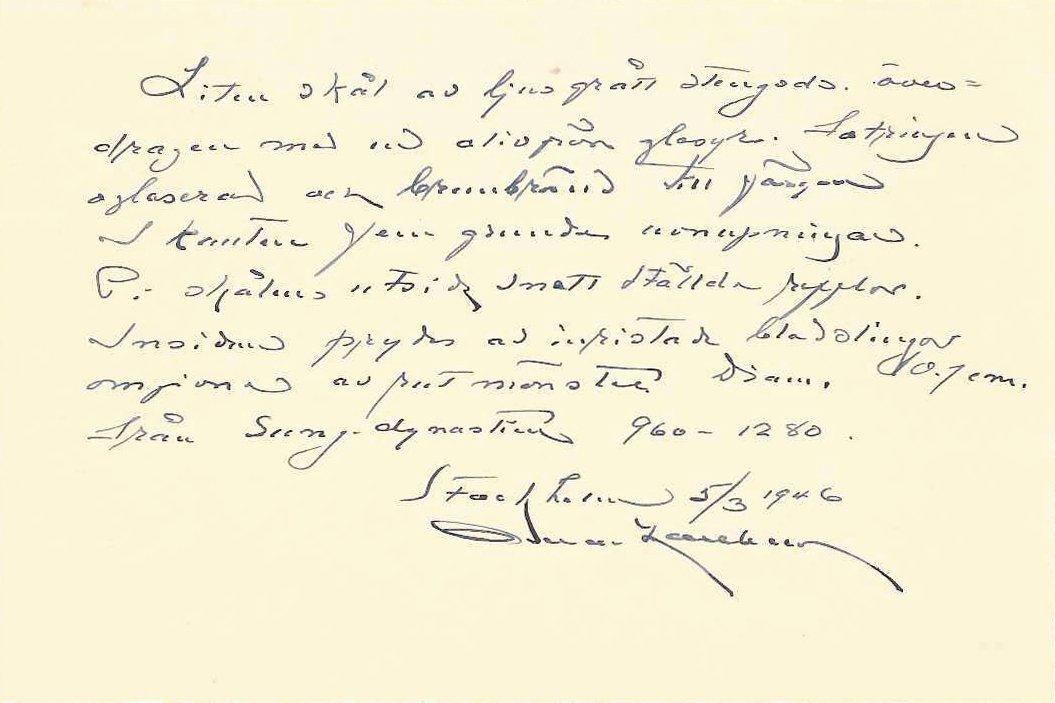 Liten skål av ljusgrått stengods. över=
dragen med en olivgrön glasyr. Fotringen
oglaserad och brunbränd till färgen
I kanten fem grunda urnupningar.
På skålens utsida snett ställda
Insidan prydes av inristade bladslingor
omgivna av mönster Diam. 10.7 cm.
från Sung-dynastien 960-1280.
Stockholm 5/3 1946